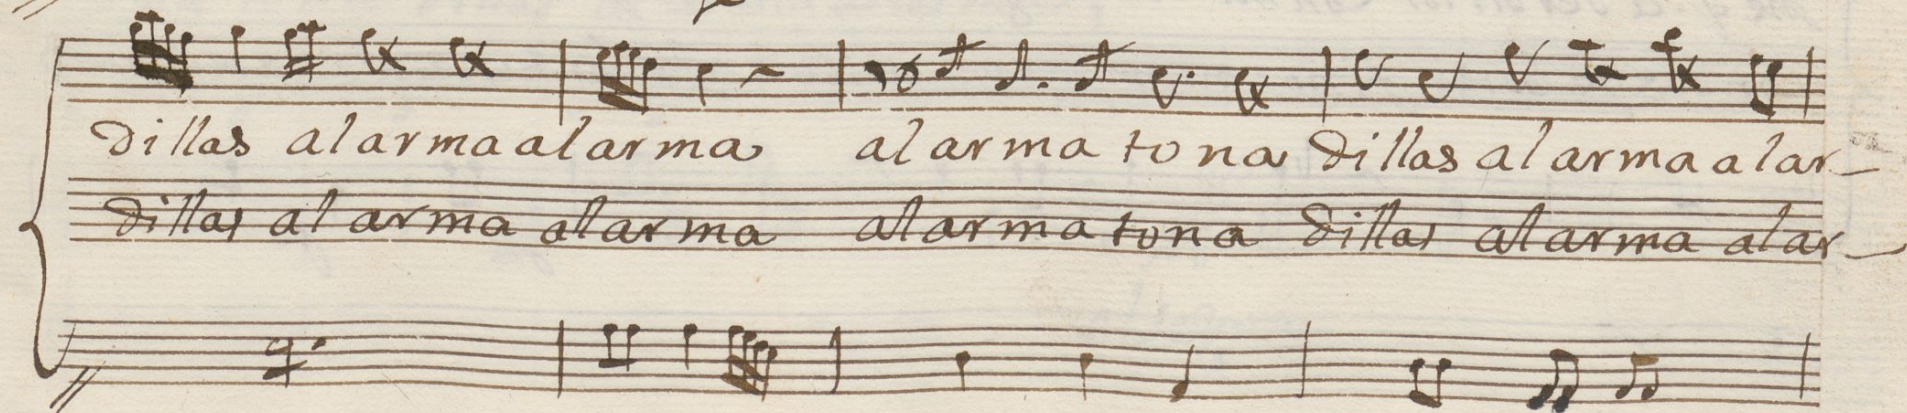 dillas alarma alarma alarma tona dillas alarma alar-
dillas alarma alarma alarma tona dillas alarma alar-